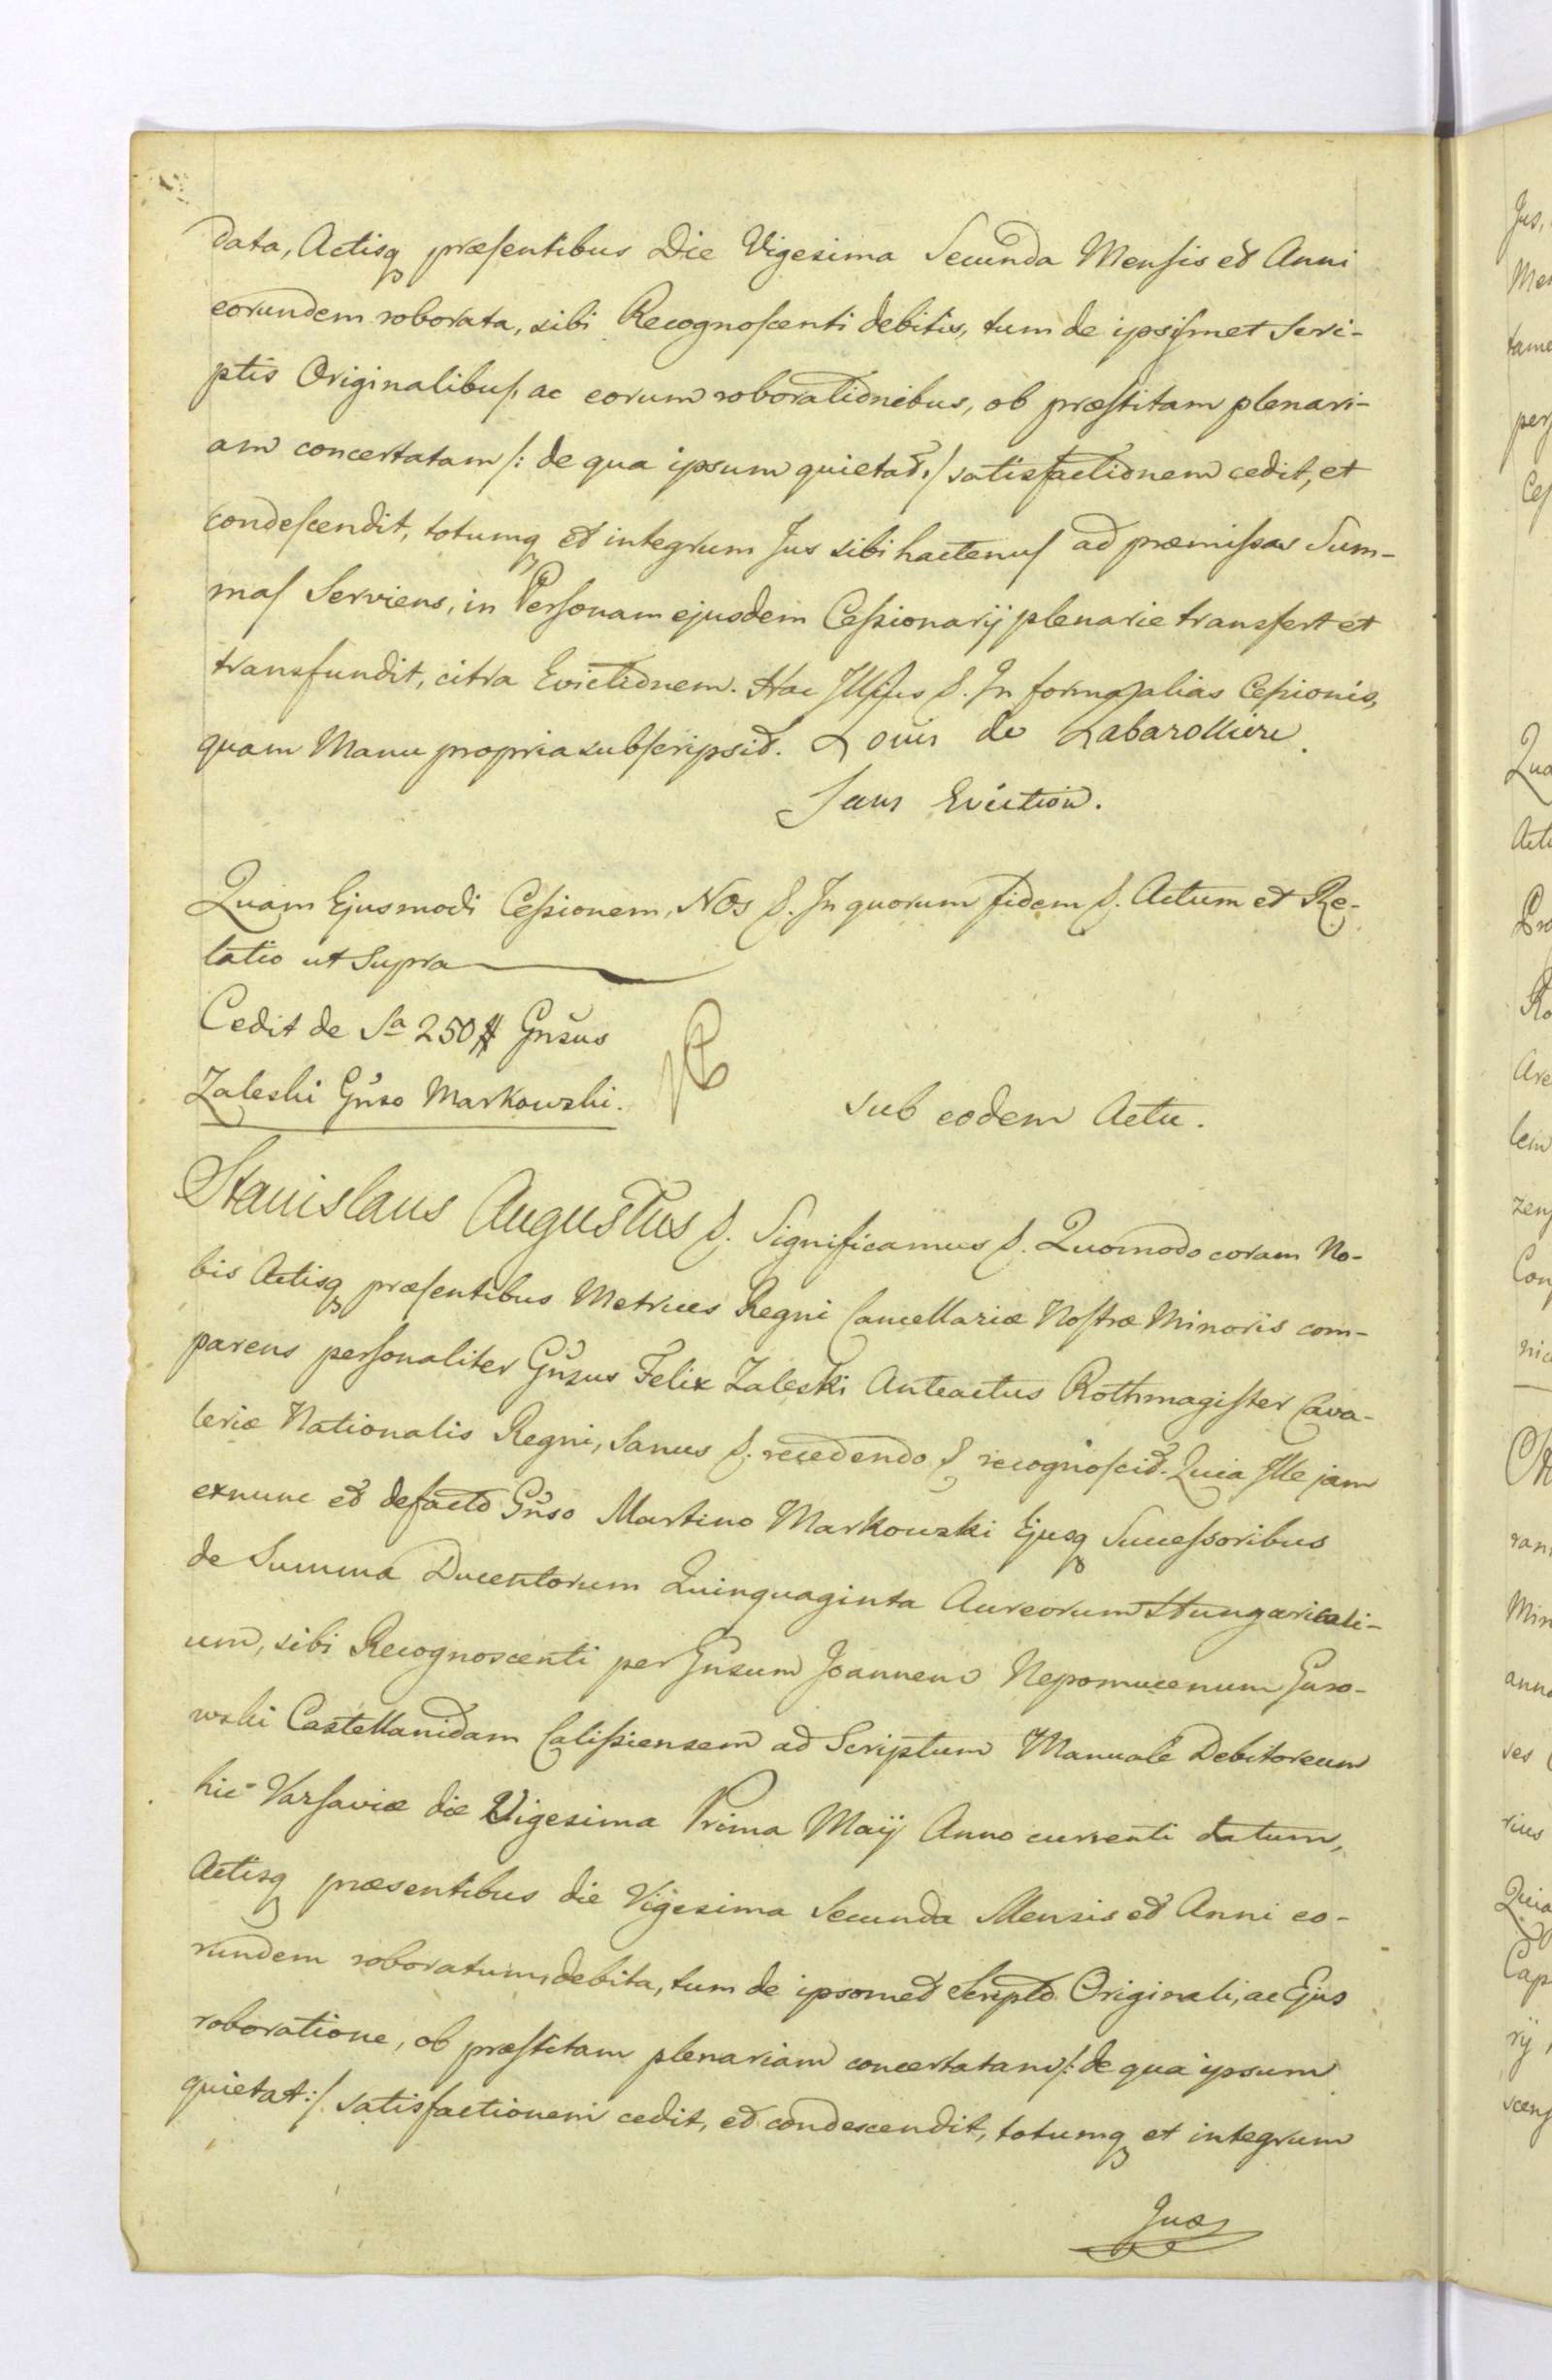 data, Actisq præsentibus Die Vigesima Secunda Mensis et Anni
eorundem roborata, sibi Recognoscenti debitis, tum de ipsismet Scri-
ptis Originalibus, ac eorum roborationibus, ob præstitam plenari-
am concertatam /: de qua ipsum quietat :/ satisfactionem cedit, et
condescendit, totumq et integrum Jus sibi hactenus ad præmissas Sum-
mas Serviens, in Personam ejusdem Cessionarij plenarie transfert et
transfundit, citra Evictionem. Hac Illius &. In forma alias Cessionis,
quam Manu propria subscripsit. Louis de Labarolliere.
Sans Eviction.
Quam Ejusmodi Cessionem, Nos &. In quorum fidem &. Actum et Re-
latio ut Supra
Cedit de Sa 250 # Gnsus
Zaleski Gnso Markowski.
sub eodem Actu.
Stanislaus Augustus &. Significamus &. Quomodo coram No-
bis Actisq præsentibus Metrices Regni Cancellariæ Nostræ Minoris com-
parens personaliter Gnsus Felix Zaleski Anteactus Rothmagister Cava-
leriæ Nationalis Regni, Sanus &. recedendo & recognoscit. Quia Ille jam
exnunc et defacto Gnso Martino Markowski Ejusq Successoribus
de Summa Ducentorum Quinquaginta Aureorum Hungaricali-
um, sibi Recognoscenti per Gnsum Joannem Nepomucenum Guro-
wski Castellanidam Calissiensem ad Scriptum Manuale Debitoreum
hic Varsaviæ die Vigesima Prima Maij Anno currenti datum,
Actisq præsentibus die Vigesima Secunda Mensis et Anni eo-
rundem roboratum, debita, tum de ipsomet Scripto Originali, ac Ejus
roboratione, ob præstitam plenariam concertatam /: de qua ipsum
quietat :/ satisfactionem cedit, et condescendit, totumq et integrum
Jus